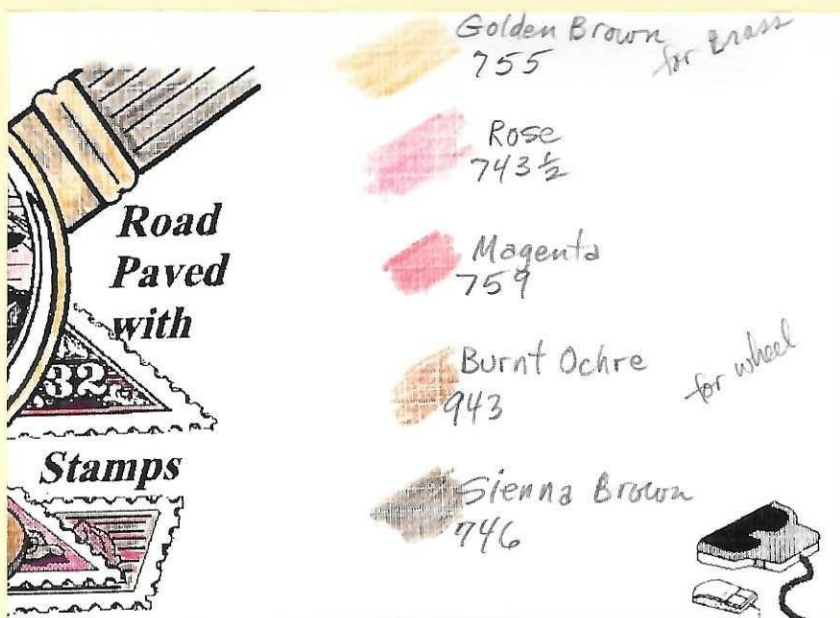 Road
Paved
with
.32
Stamps
Golden Brown for brass
755
Rose
743 ½
Magenta
759
Burnt Ochre for wheel
943
Sienna Brown
746